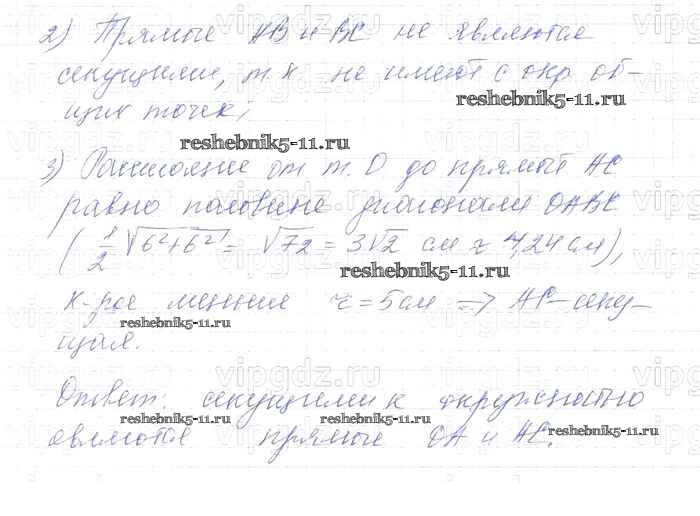 2) Прямые АВ и ВС не являются
секущими, т.к. не имеют с окр. об-
щих точек;
reshebnik5-11.ru
reshebnik5-11.ru
3) Расстояние от т. О до прямой АС
равно половине диагонали ОАВС
(1/2 √6²+6² = √72 = 3√2 см ≈ 4,24 см),
reshebnik5-11.ru
к-рое меньше r = 5 см => АС – секу-
reshebnik5-11.ru
щая.
Ответ: секущими к окружности
reshebnik5-11.ru
reshebnik5-11.ru
reshebnik5-11.ru
являются прямые ОА и АС.
vipgdz.ru